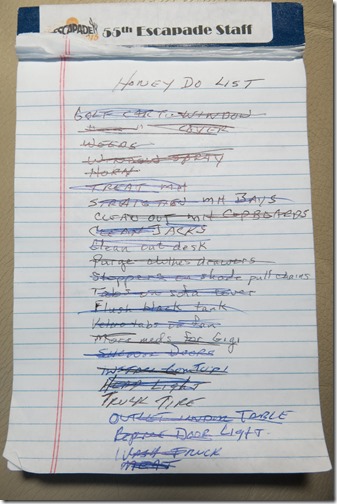 ESCAPADE 55th Escapade Staff
HONEY DO LIST
GOLF CART WINDOW
" COVER
WEEDS
WINDOW SPRAY
HORN
TREAT MH
STRAIGHTEN MH BAYS
CLEAN OUT MH CUPBOARDS
CLEAN JACKS
Clean out desk
Purge clothes drawers
Stoppers on shade pull chains
Tabs on sofa cover
Flush black tank
Velcro tabs fan
More meds for Gigi
SHOWER DOORS
INSTALL
HEAD LIGHT
TRUCK TIRE
OUTLET UNDER TABLE
DOOR LIGHT
WASH TRUCK